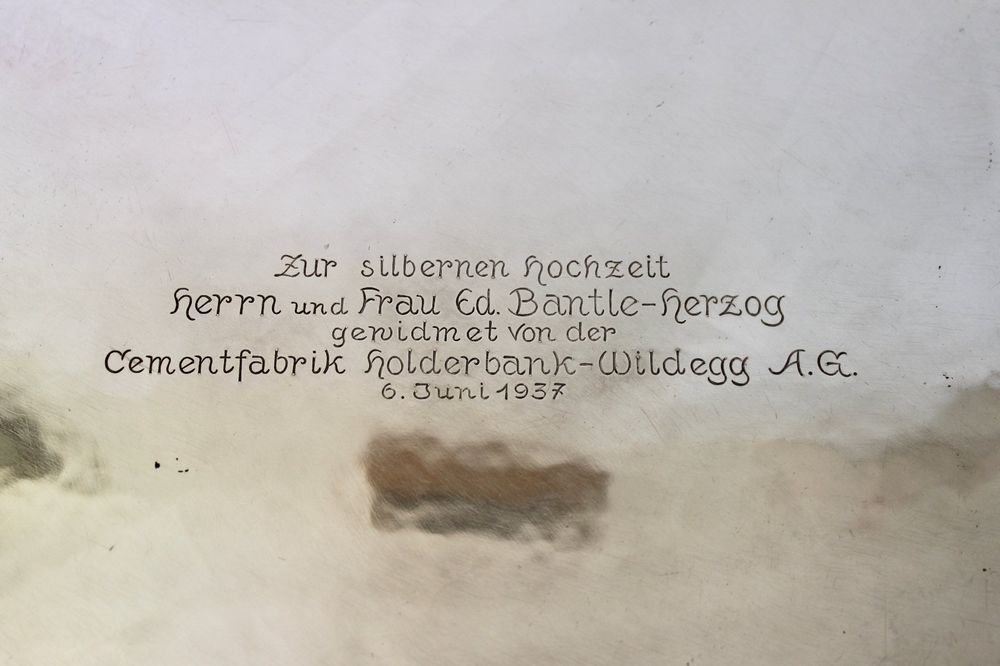 Zur silbernen Hochzeit
Herrn und Frau Ed. Bantle-Herzog
gewidmet von der
Cementfabrik Holderbank-Wildegg A.G.
6. Juni 1937